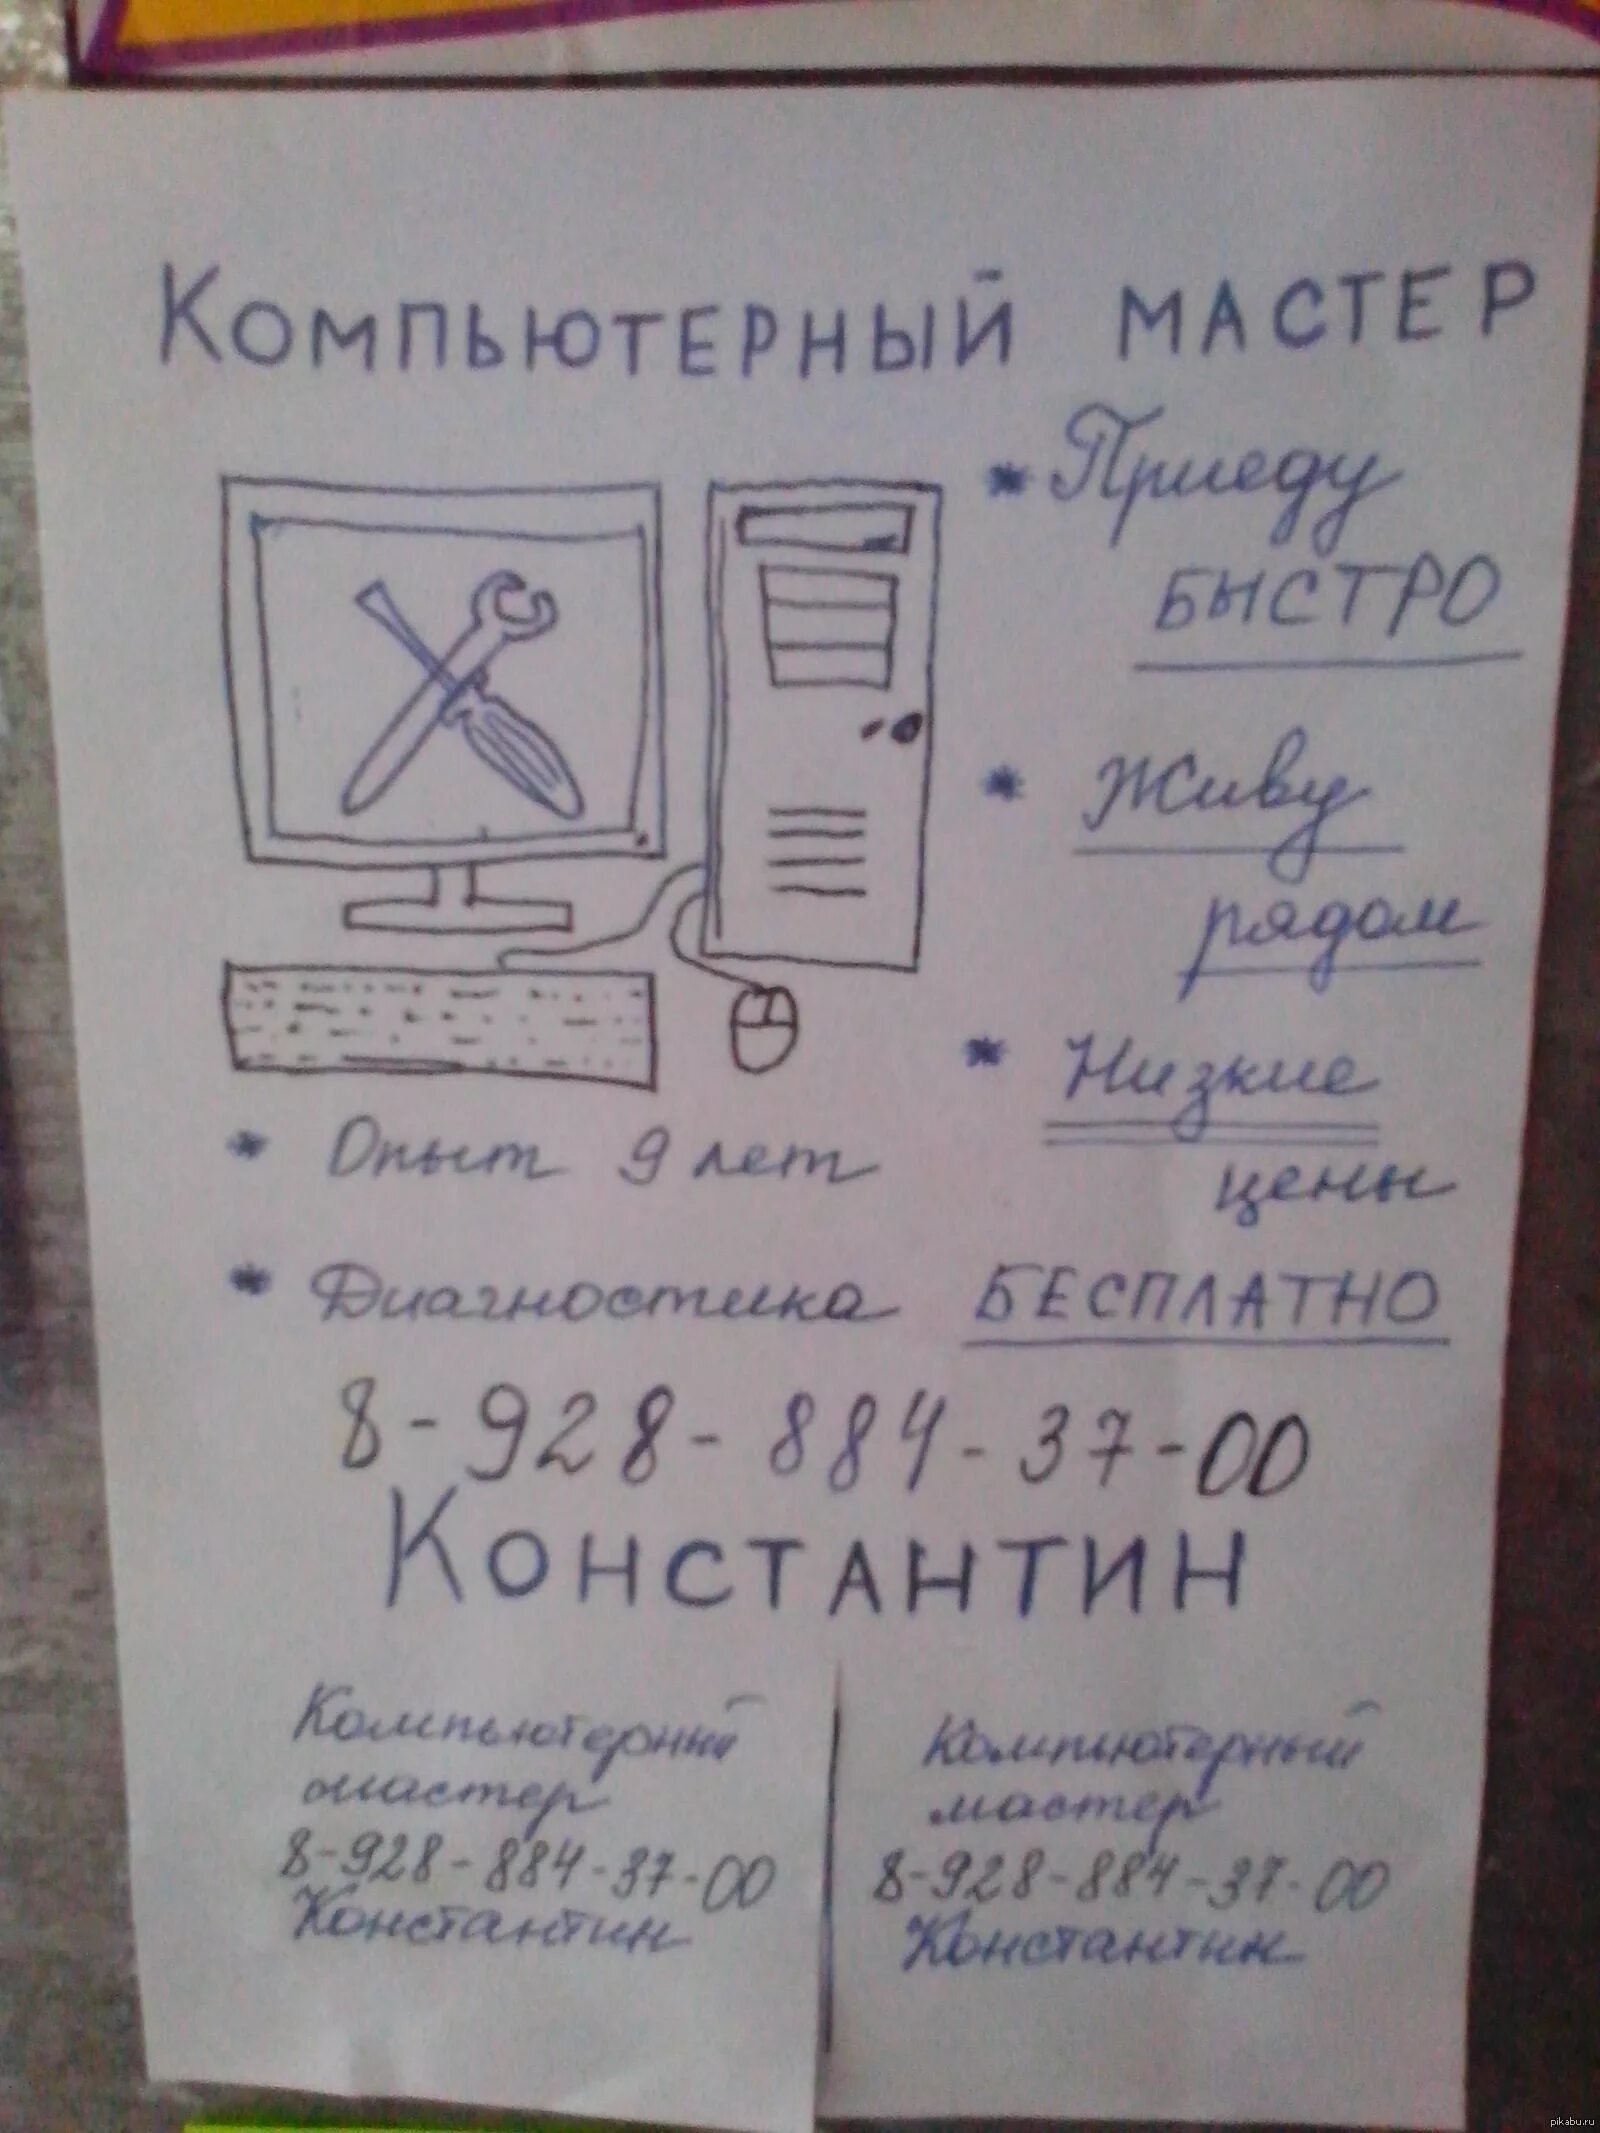 Компьютерный мастер
* Приеду
БЫСТРО
* Живу
рядом
* Низкие
цены
* Опыт 9 лет
* Диагностика БЕСПЛАТНО
8-928-884-37-00
Константин
Компьютерный
мастер
8-928-884-37-00
Константин
Компьютерный
мастер
8-928-884-37-00
Константин
pikabu.ru